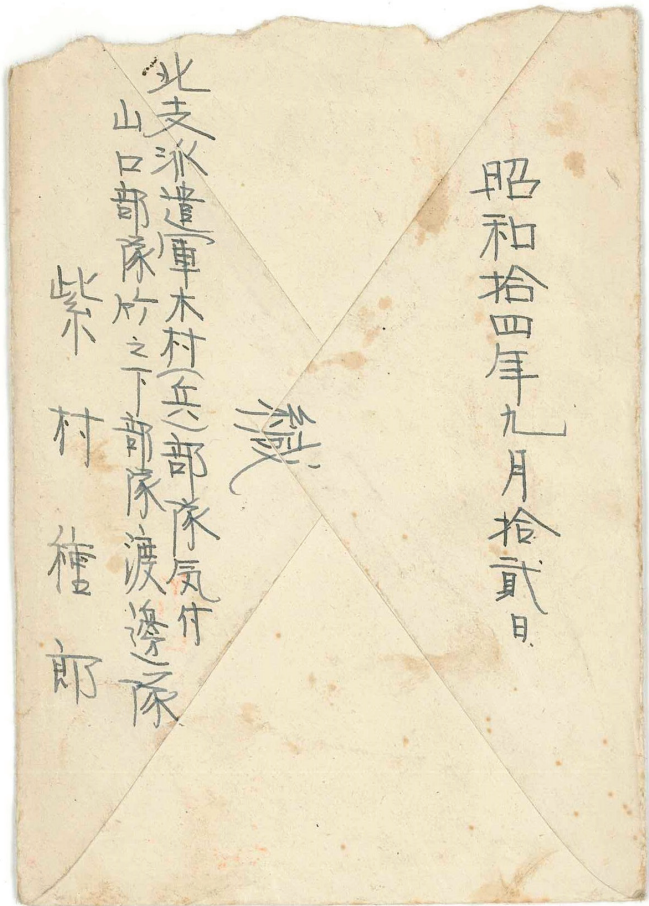 昭和拾四年九月拾貳日
緘
北支派遣軍木村(兵)部隊気付
山口部隊竹之下部隊渡邊隊
紫村種郎